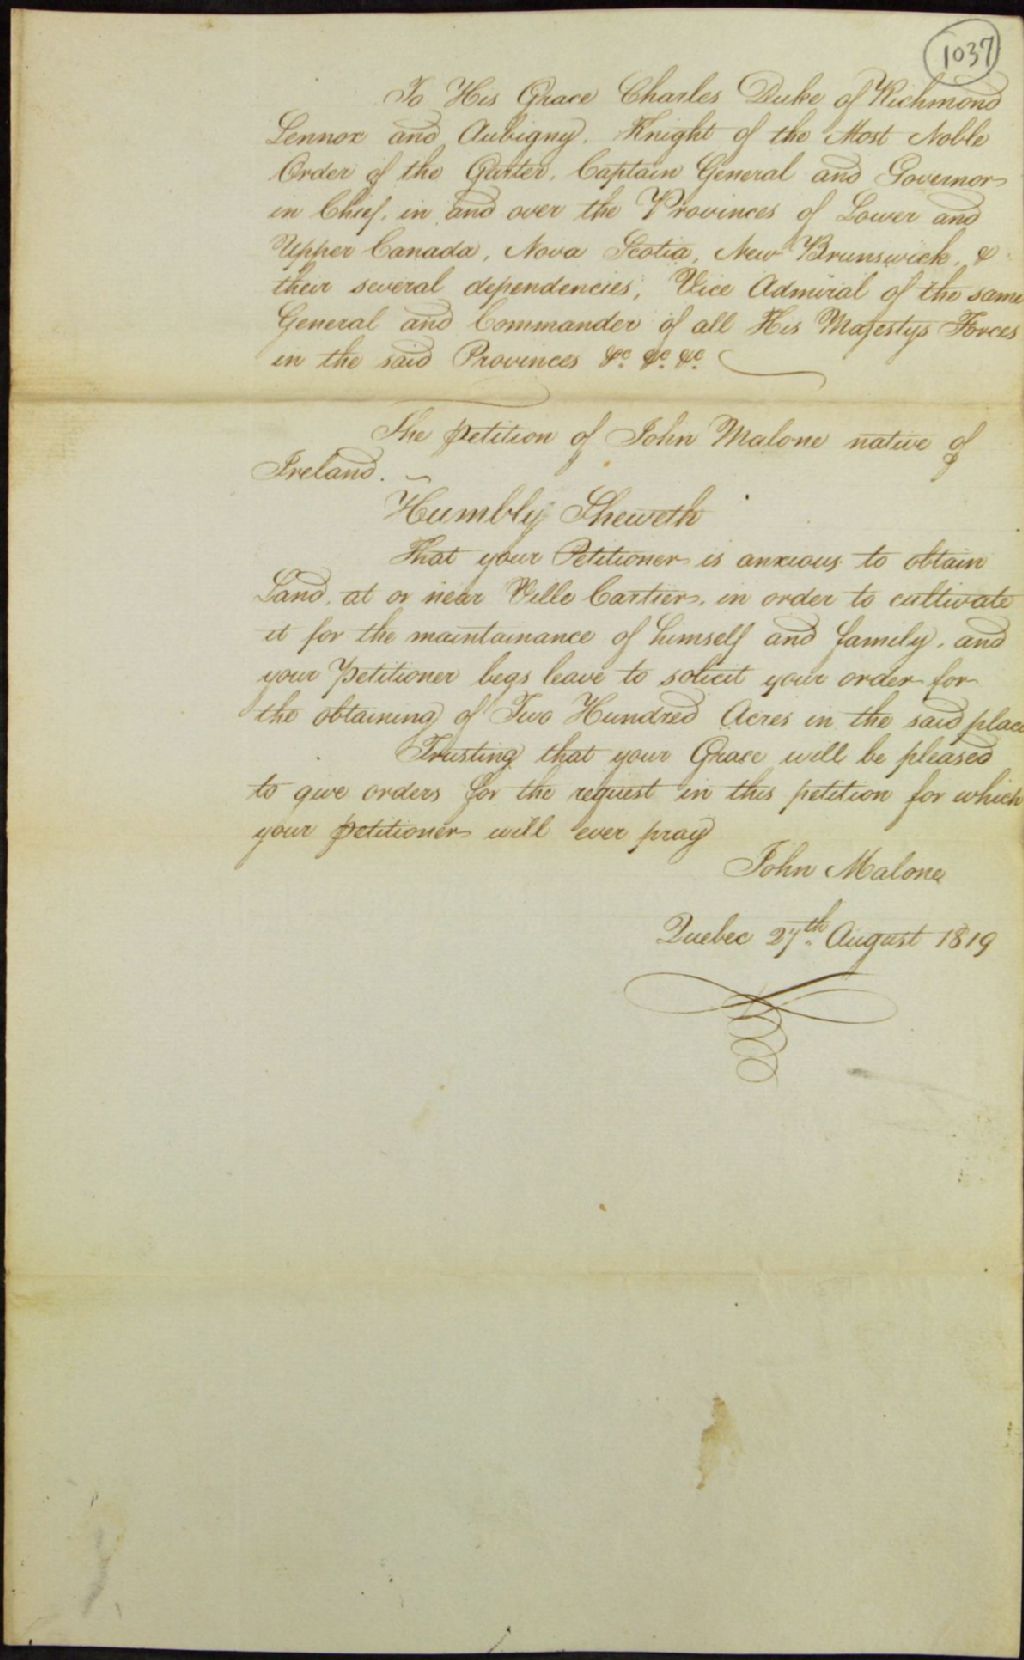 1037
To His Grace Charles Duke of Richmond
Lennox and Aubigny, Knight of the Most Noble
Order of the Garter, Captain General and Governor
in Chief, in and over the Provinces of Lower and
Upper Canada, Nova Scotia, New Brunswick, &
their several dependencies, Vice Admiral of the same
General and Commander of all His Majestys Forces
in the said Provinces &c. &c. &c.
The petition of John Malone native of
Ireland.
Humbly Sheweth
That your Petitioner is anxious to obtain
Land, at or near Ville Cartier, in order to cultivate
it for the maintainance of himself and family, and
your Petitioner begs leave to solicit your order for
the obtaining of Two Hundred Acres in the said place
Trusting that your Grace will be pleased
to give orders for the request in this petition for which
your petitioner will ever pray
John Malone
Quebec 27th. August 1819